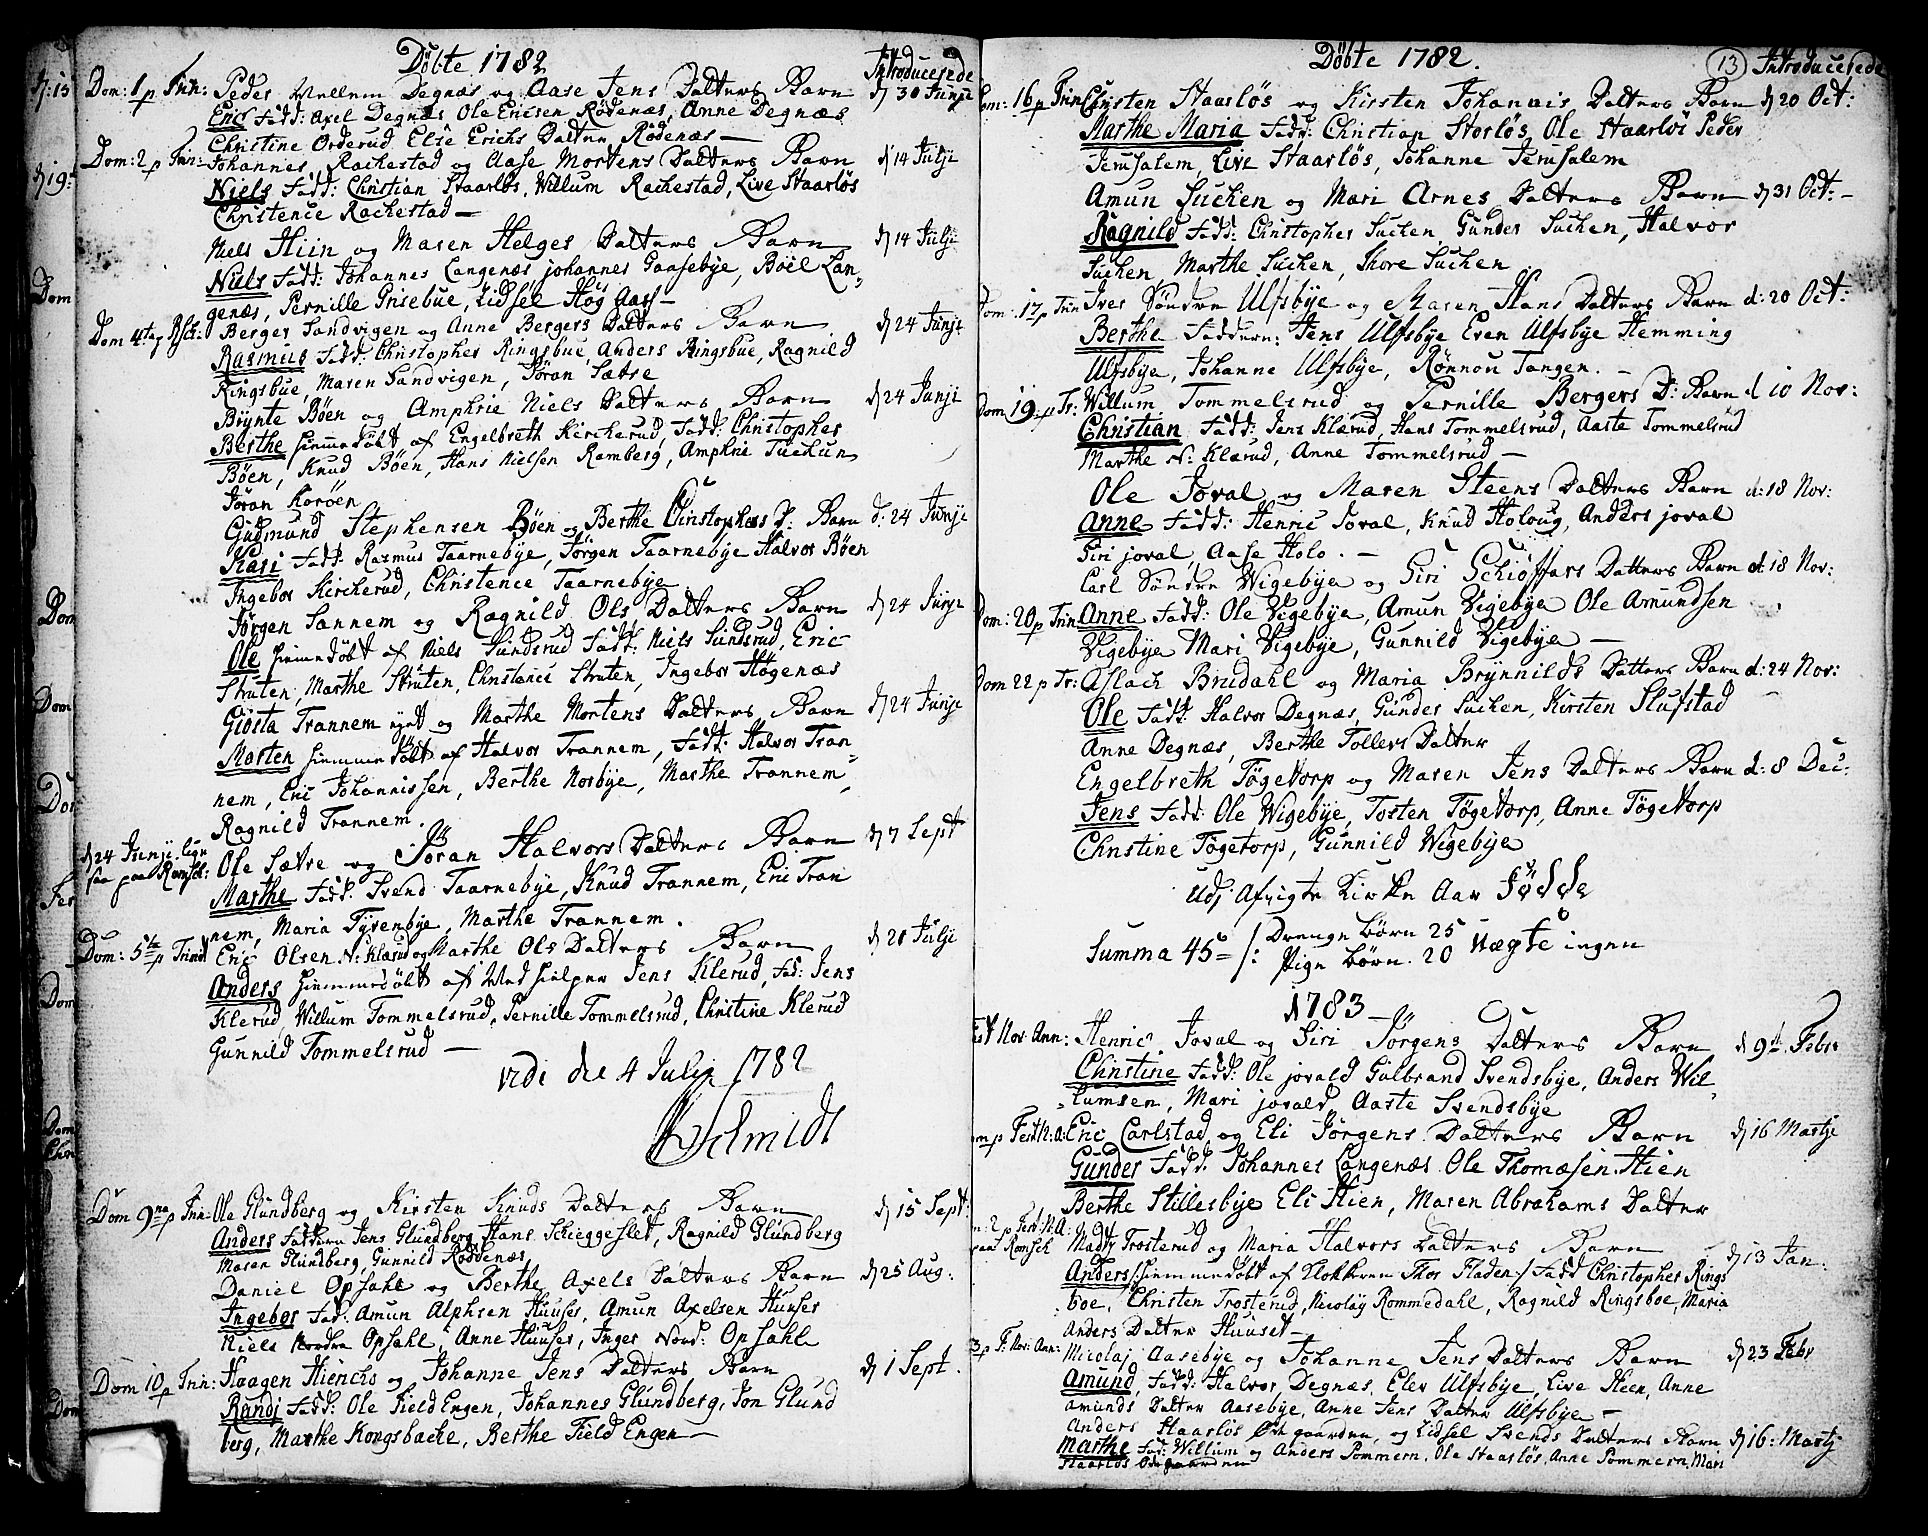 Döbte 1782
Introducerede
Dom: 1 p Trin: Peder Mellem Degnæs og Aase Jens Datters Barn d 30 Junji
Eric Fadd: Axel Degnæs Ole Ericsen Rödenæs, Anne Degnæs
Christine Orderud Else Erichs Datter Rödenæs —
Dom: 2 p Trin: Johannes Rackestad og Aase Mortens Datters Barn d 14 Julji
Niels Fadd: Christian Staarløs, Willum Rackestad, Live Staarløs
Christence Rackestad —
Niels Hiin og Maren Helges Datters Barn d 14 Julji
Niels Fadd: Johannes Langenæs johannes Gaasebye, Böel Lan-
genæs, Pernille Grisebue, Lidsel Høg Aass —
Dom 4ta p Berger Sandvigen og Anne Bergers Datters Barn d 24 Junji
Rasmus Fadd: Christopher Ringsbue, Anders Ringsbue, Ragnild
Ringsbue, Maren Sandvigen, Jöran Sætre
Brynte Böen og Amphrie Niels Datters Barn d 24 Junji
Berthe hiemmedöbt af Engelbreth Kirckerud, Fadd: Christopher
Böen, Knud Böen, Hans Nielsen Ramberg, Amphrie Tuckun
Jöran Koröen
Gudmund Stephensen Böen og Berthe Christophers D: Barn d: 24 Junji
Kari Fadd: Rasmus Taarnebye, Jörgen Taarnebye Halvor Böen
Ingebor Kirckerud, Christence Taarnebye
Jörgen Sannem og Ragnild Ols Datters Barn d 24 Junji
Ole hiemmedöbt af Niels Sundsrud Fadd: Niels Sundsrud, Eric
Struten, Marthe Struten, Christence Struten, Ingebor Högenæs
Giösta Trannem og Marthe Mortens Datters Barn d 24 Junji
Morten hiemmedöbt af Halvor Trannem, Fadd: Halvor Tran-
nem, Eric Johannissen, Berthe Norbye, Marthe Trannem
Ragnild Trannem.
d 24 Junji
Ole Sætre og Jöran Halvors Datters Barn d 7 Sept
Marthe Fadd: Svend Taarnebye, Knud Trannem, Eric Tran
nem, Maria Tyrenbye, Marthe Trannem.
Dom: 5te p Trinit Eric Olsen N: Klærud og Marthe Ols Datters Barn d 28 Julji
Anders hiemmedöbt af Medhielper Jens Klerud, Fad: Jens
Klerud, Willum Tommelsrud, Pernille Tommelsrud, Christine Klerud
Gunnild Tommelsrud —
vidi die 4 Julii 1782
Schmidt
Dom 9na p Trin: Ole Glundberg og Kirsten Knuds Datters Barn d 15 Sept:
Anders Faddern Jens Glundberg Hans Schieggeslet, Ragnild Glundberg
Maren Glundberg, Gunnild Röddenæs
Daniel Opsahl og Berthe Axels Datters Barn d 25 Aug:
Ingebor Fad: Amun Alphsen Huuser, Amun Axelsen Huuser
Niels Nordre Opsahl, Anne Huuser, Inger Nord: Opsahl
Dom 10 p Trin: Haagen Hienchs og Johanne Jens Datters Barn d 1 Sept.
Randi Fadd: Ole Field Engen, Johannes Glundberg, Jon Glund
berg, Marthe Kongsbacke, Berthe Field Engen —
Döbte 1782.
13
Introducerede
Dom: 16 p Trin Christen Staarløs og Kirsten Johannis Datters Barn d 20 Oct:
Marthe Maria Fadd: Christian Storløs, Ole Staarløs Peder
Jerusalem, Live Staarløs, Johanne Jerusalem
Amun Suchen og Mari Arnes Datters Barn d 31 Oct: —
Ragnild Fadd: Christopher Suchen, Gunder Suchen, Halvor
Suchen, Marthe Suchen, Thore Suchen
Dom: 17 p Trin Iver Söndre Ulfsbye og Maren Hans Datters Barn d: 20 Oct:
Berthe Faddern: Jens Ulfsbye Even Ulfsbye Hemming
Ulfsbye, Johanne Ulfsbye, Rönnou Tangen. —
Dom 19: p Tr: Willum Tommelsrud og Pernille Bergers D: Barn d 10 Nov:
Christian Fadd: Jens Klerud, Hans Tommelsrud, Aaste Tommelsrud
Marthe N: Klærud, Anne Tommelsrud —
Ole Joval og Maren Steens Datters Barn d: 18 Nov:
Anne Fadd: Henric Joval, Knud Holoug, Anders joval
Siri joval, Aase Holo. —
Carl Söndre Wigebye og Siri Schiöffars Datters Barn d: 18 Nov:
Dom: 20 p Trin Anne Fadd: Ole Vigebye, Amun Vigebye Ole Amundsen
Vigebye Mari Vigebye, Gunnild Vigebye —
Dom 22 p Tr: Aslach Brudahl og Maria Brynnilds Datters Barn d: 24 Nov:
Ole Fadd: Halvor Degnæs, Gunder Suchen, Kirsten Slufstad
Anne Degnæs, Berthe Tollevs Datter
Engelbreth Tögetorp og Maren Jens Datters Barn d: 8 Dec:
Jens Fadd: Ole Wigebye, Tosten Tögetorp, Anne Tögetorp
Christine Tögetorp, Gunnild Wigebye
Udj Afvigte Kirke Aar Födde
Summa 45 /: Drenge börn 25
Pige börn. 20 Uægte ingen
1783 —
Fest Nov Ann: Henric Joval og Siri Jörgens Datters Barn d 9de Febr
Christine Fadd: Ole jovald Gulbrand Svendsbye, Anders Wil-
lumsen, Mari jovald Aaste Svendsbye
Eric Carlstad og Eli Jörgens Datters Barn d 16 Martji
Gunder Fadd: Johannes Langenæs Ole Thomæsen Hien
Berthe Stillesbye Eli Hien, Maren Abrahams Datter
Mads Trosterud og Maria Halvors Datters Barn d 13 Jan:
Anders /: hiemmedöbt af Klokkeren Thor Fladen :/ Fadd Christopher Rings
boe, Christen Trosterud, Nicolay Rommedahl, Ragnild Ringsboe, Maria
Anders Datter Huuset —
3 p F: Nov: Ann: Nicolaj Aasebye og Johanne Jens Datters Barn d 23 Febr
Amund, Fadd: Halvor Degnæs, Elev Ulfsbye, Live Heen, Anne
Amunds Datter Aasebye, Anne Jens Datter Ulfsbye —
Anders Staarløs Ödegaarden, og Lidsel Svends Datters Barn d 16: Martj
Marthe Fad: Willum og Anders Pommern, Ole Staarløs, Anne Pommern, Mari
Staarløs Ödegaarden